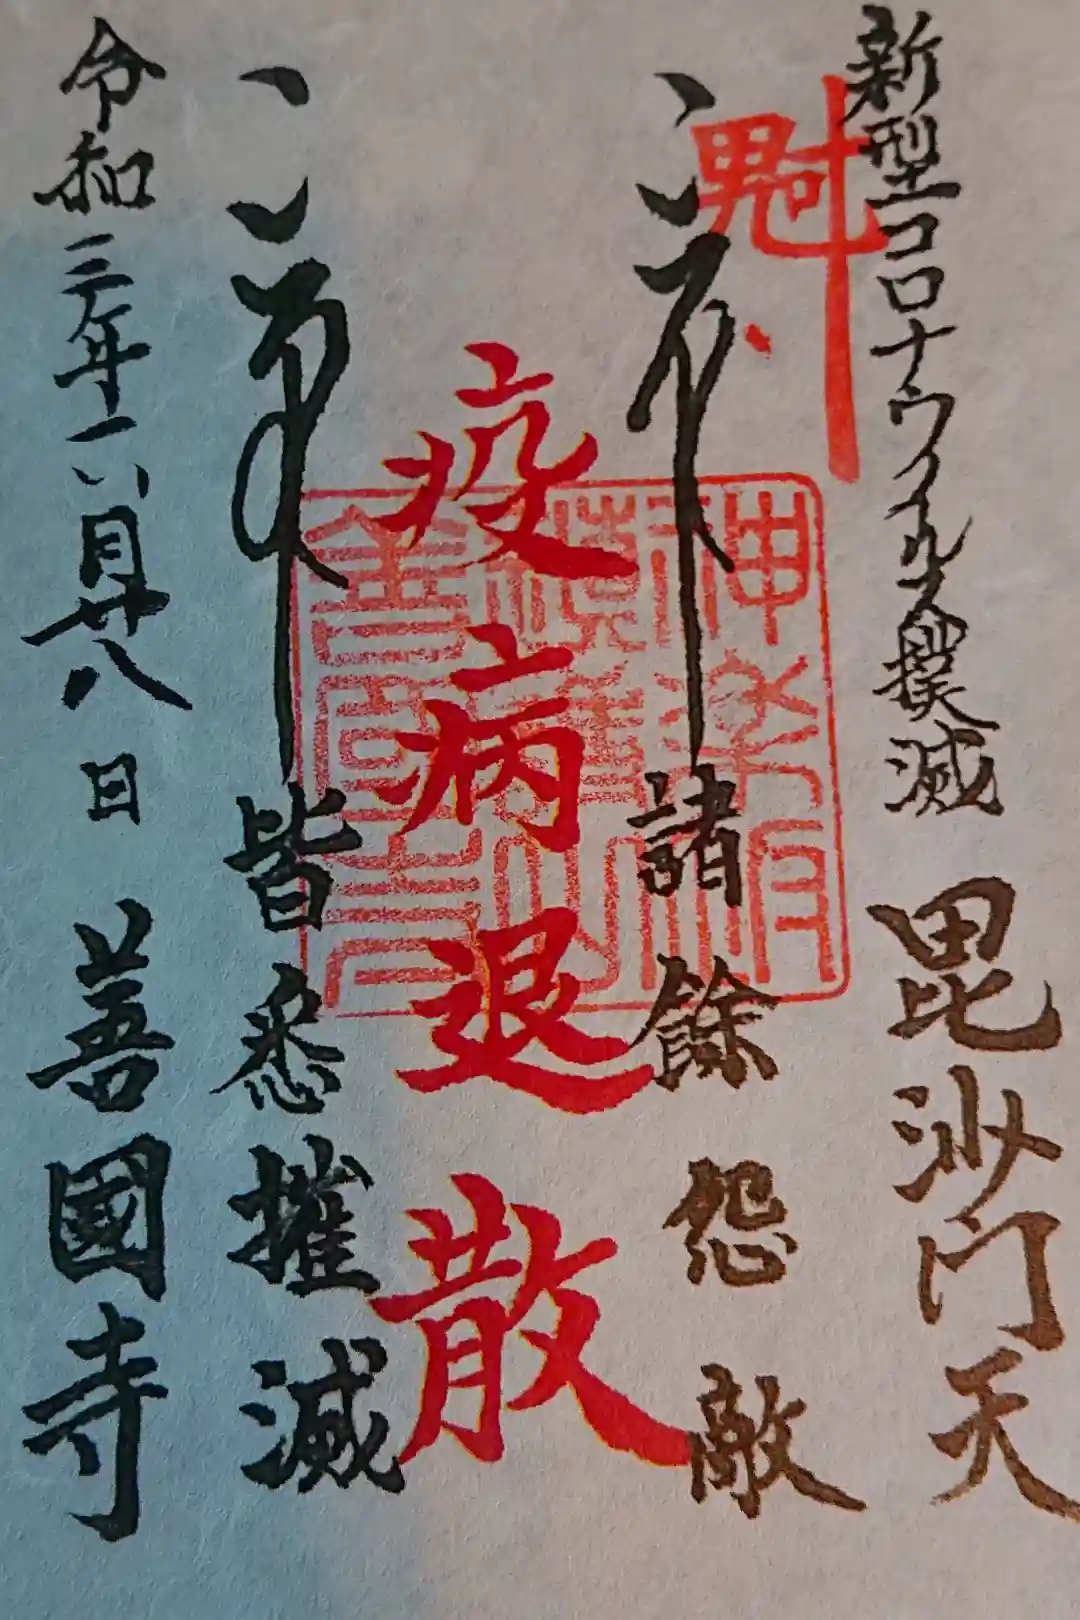 新型コロナウイルス撲滅 毘沙門天
魁
諸餘怨敵
疫病退散
神楽坂
鎮護山
善國寺
皆悉摧滅
令和三年一月廿八日 善國寺